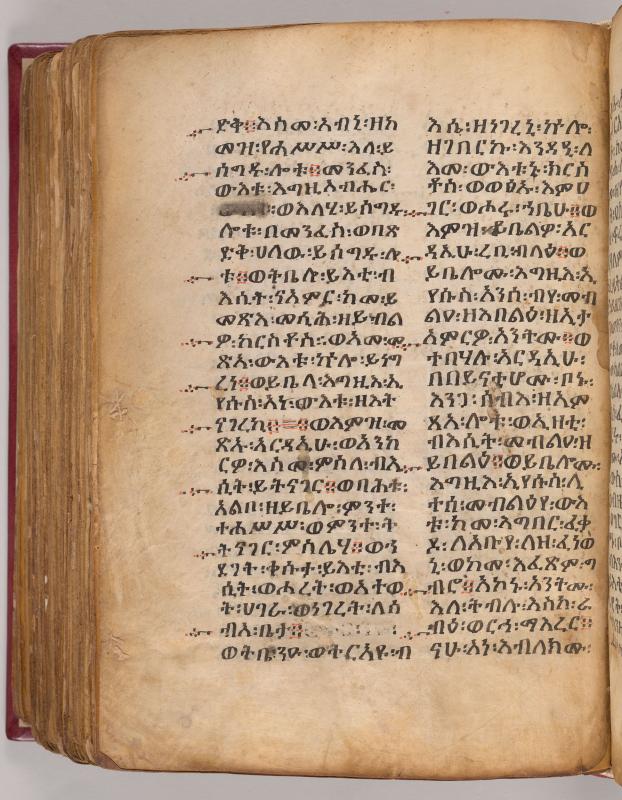 ድቅ፨እስመ፡አብኒ፡ዘከ
መዝ፡የሐሥሥ፡እለ፡ይ
ሰግዱ፡ሎቱ፨መንፈስ፡
ውእቱ፡እግዚአብሔር፡
፡ወእለሂ፡ይሰግዱ
ሎቱ፡በመንፈስ፡ወበጽ
ድቅ፡ሀለው፡ይሰግዱ፡ሎ
ቱ፨ወትቤሎ፡ይእቲ፡ብ
እሲት፡ናአምር፡ከመ፡ይ
መጽእ፡መሲሕ፡ዘይብል
ዎ፡ክርስቶስ፡ወእመ፡መ
ጽአ፡ውእቱ፡ኵሎ፡ይነግ
ረነ፨ወይቤላ፡እግዚእ፡ኢ
የሱስ፡አነ፡ውእቱ፡ዘእት
ናገረኪ፨ወእምዝ፡መ
ጽኡ፡አርዳኢሁ፡ወአንከ
ርዎ፡እስመ፡ምስለ፡ብእ
ሲት፡ይትናገር፨ወባሕቱ፡
አልቦ፡ዘይቤሎ፡ምንተ፡
ተሐሥሥ፡ወምንተ፡ት
ትናገር፡ምስሌሃ፨ወኀ
ደገት፡ቀሱታ፡ይእቲ፡ብእ
ሲት፡ወሖረት፡ወአተወ
ት፡ሀገረ፡ወነገረት፡ለሰ
ብአ፡ቤታ፨
ወትቤ፡ንዑ፡ወትርአዩ፡ብ
እሴ፡ዘነገረኒ፡ኵሎ፡
ዘገበርኩ፡እንዳዒ፡ለ
እመ፡ውእቱኑ፡ክርስ
ቶስ፡ወወፅኡ፡እምሀ
ገር፡ወሖሩ፡ኀቤሁ፨ወ
እምዝ፡ይቤልዎ፡አር
ዳኢሁ፡ረቢ፡ብላዕ፨ወ
ይቤሎሙ፡እግዚእ፡ኢ
የሱስ፡አንሰ፡ብየ፡መብ
ልዕ፡ዘእበልዕ፡ዘኢታ
አምርዎ፡አንትሙ፨ወ
ተባሃሉ፡አርዳኢሁ፡
በበይናቲሆሙ፡ቦኑ፡
እንጋ፡ሰብእ፡ዘአም
ጽአ፡ሎቱ፡ወኢዘቲ፡
ብእሲት፡መብልዐ፡ዘ
ይበልዕ፨ወይቤሎሙ፡
እግዚእ፡ኢየሱስ፡ሊ
ተሰ፡መብልዕየ፡ውእ
ቱ፡ከመ፡እግበር፡ፈቃ
ዶ፡ለአቡየ፡ለዘ፡ፈነወ
ኒ፡ወከመ፡እፈጽም፡ግ
ብሮ፨አኮኑ፡አንትሙ፡
እለ፡ትብሉ፡እስከ፡ራ
ብዕ፡ወርኅ፡ማእረር፨
ናሁ፡አነ፡እብለክሙ፡